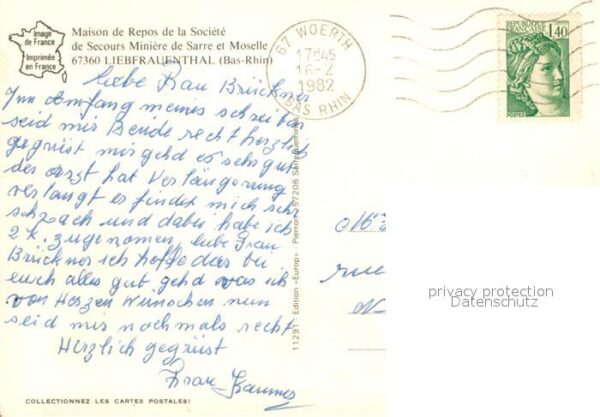 Image
de France
Imprimée
en France
Maison de Repos de la Société
de Secours Minière de Sarre et Moselle
67360 LIEBFRAUENTHAL (Bas-Rhin)
67 WOERTH
17H45
16-2
1982
BAS RHIN
REPUBLIQUE
FRANÇAISE
1,40
POSTES
Liebe Frau Brückner
Im Amfang meines schreiben
seid mir Beude recht herzlich
gegrüst mir gehd es sehr gut
der arzt hat Verlängerung
verlangt es findet mich sehr
schwach und dabei habe ich
2 k. zugenomen, liebe Frau
Brückner ich hoffe das bei
euch alles gut gehd was ich
von Herzen Wünschen nun
seid mir nochmals recht
Herzlich gegrüst
Frau
11291 - Edition «Europ» - Pierron - 57206 Sarreguemines
rue
privacy protection
Datenschutz
COLLECTIONNEZ LES CARTES POSTALES!